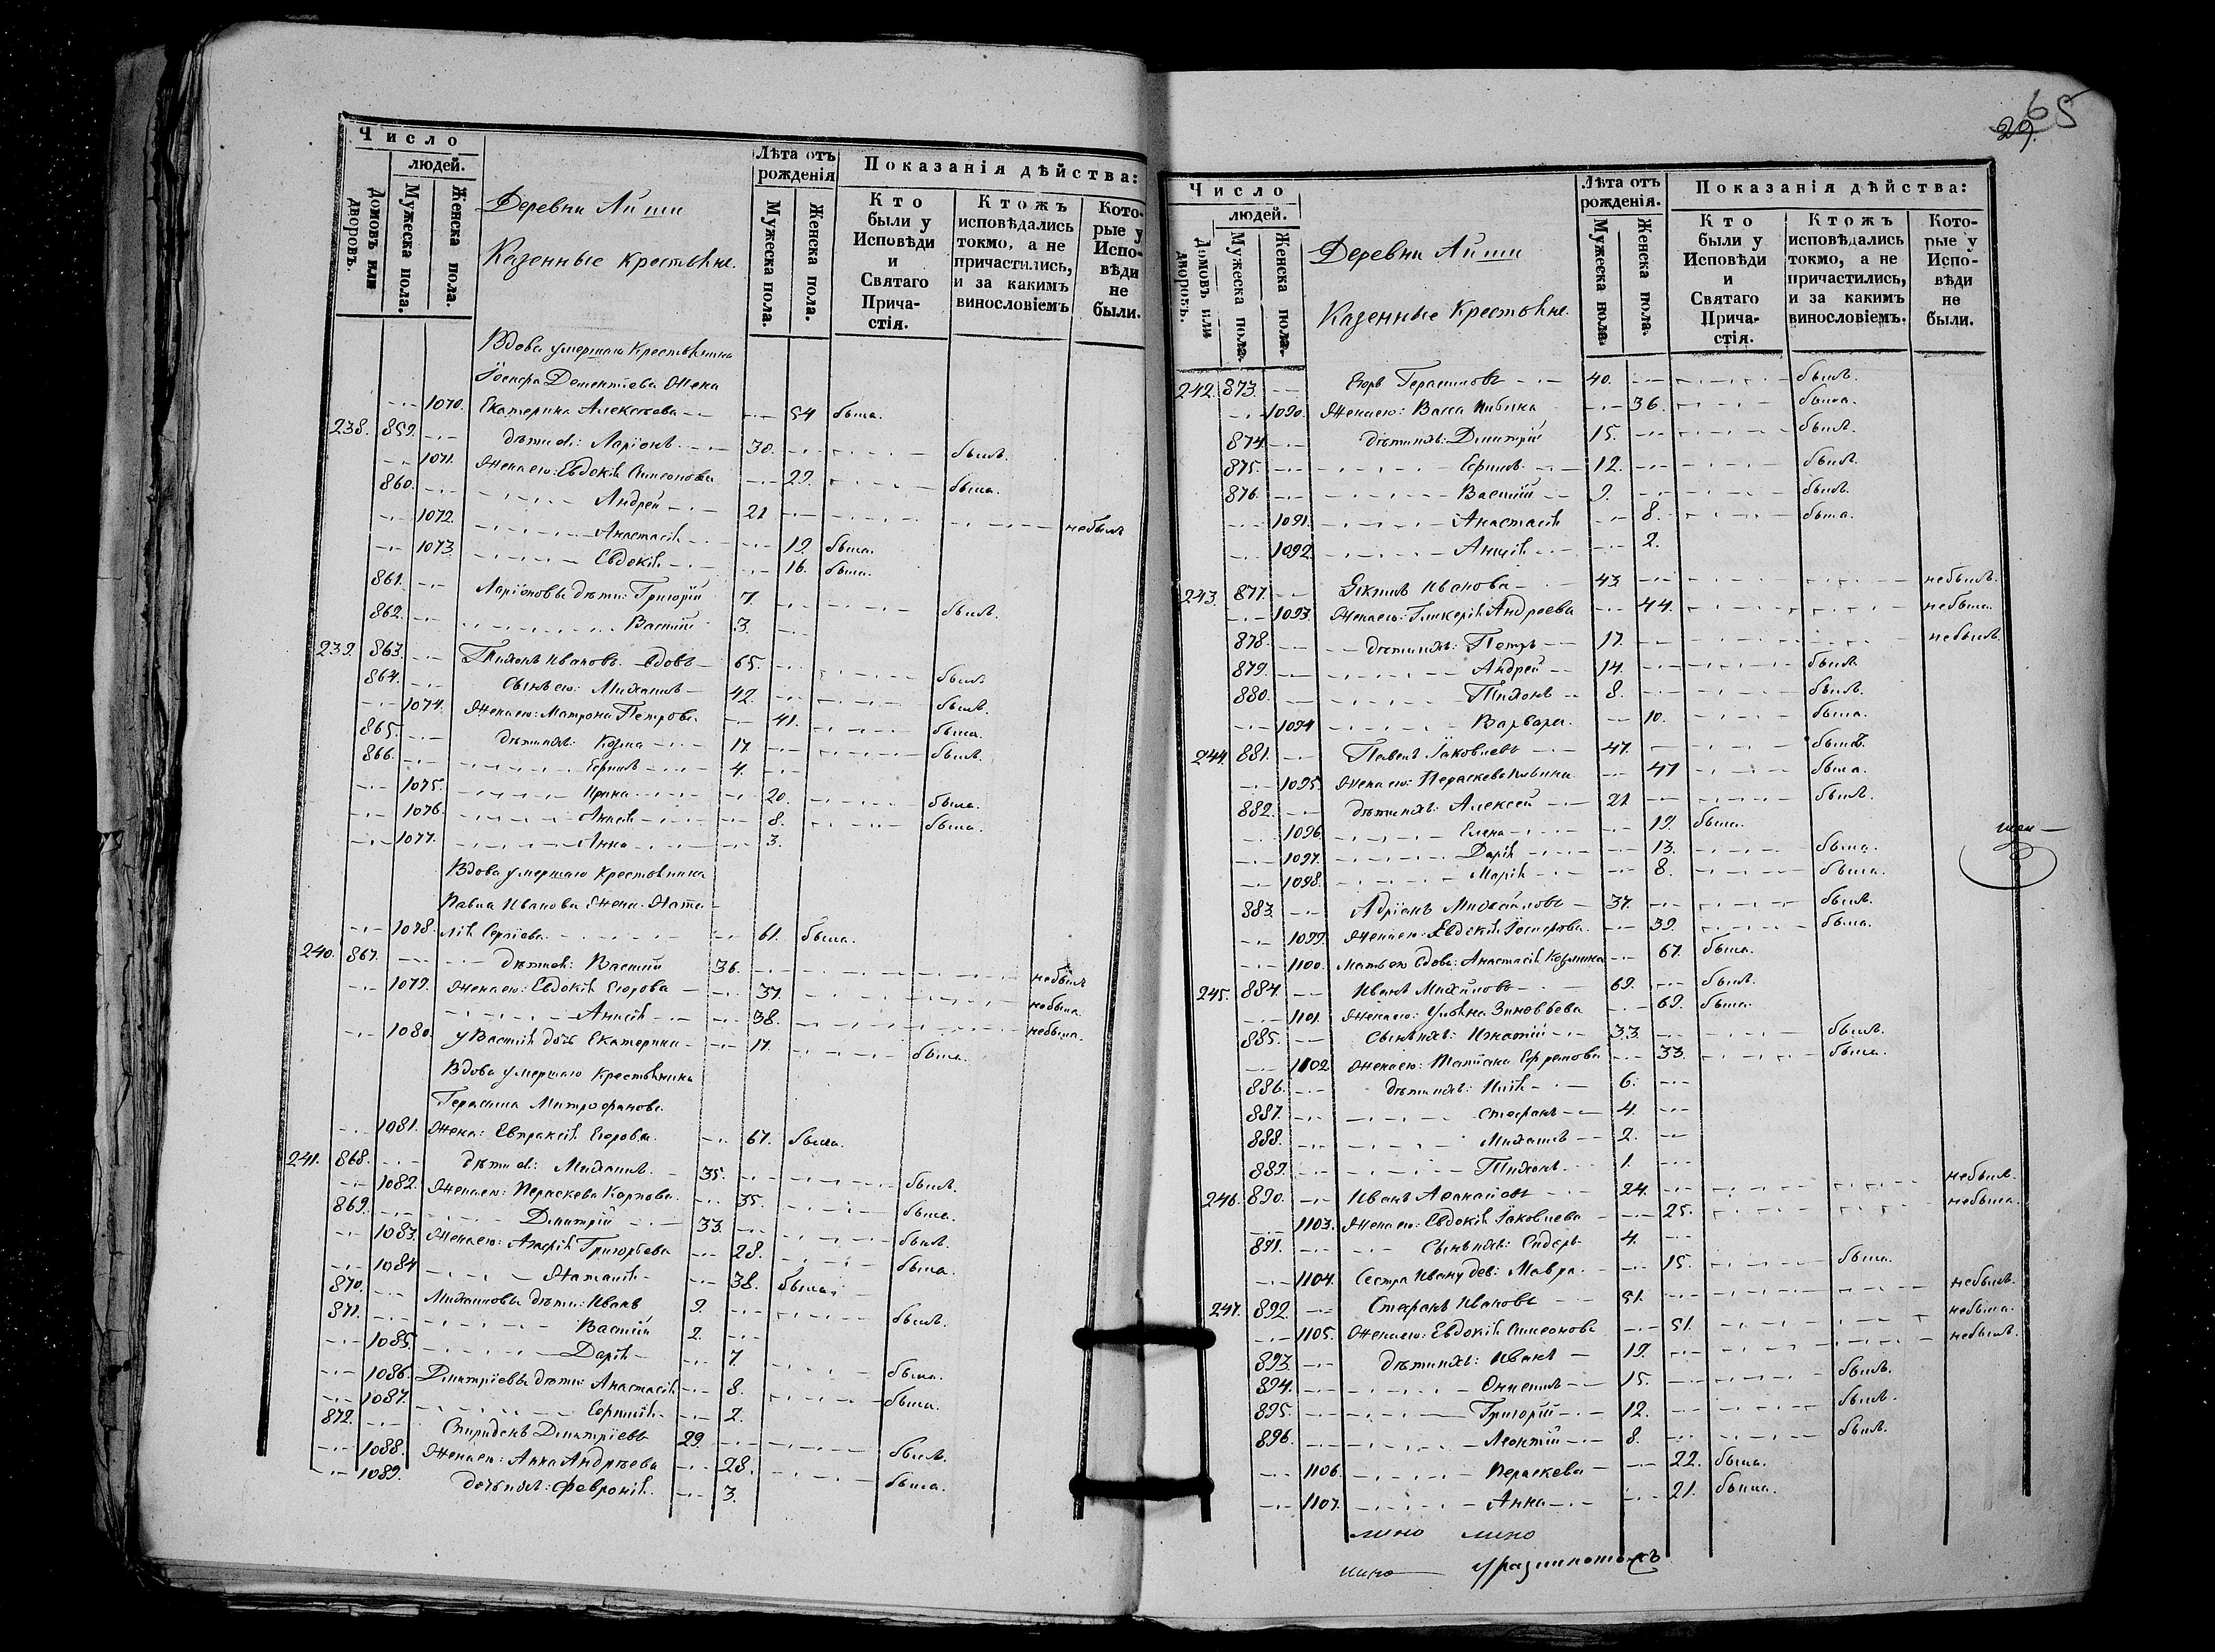 Число
людей.
Домовъ или дворовъ.
Мужеска пола.
Женска пола.
Деревни Айши
Казенные крестьяне.
Лѣта отъ рожденія
Мужеска пола.
Женска пола.
Показанія дѣйства:
Кто были у Исповѣди и Святаго Прича-стія.
Ктожъ исповѣдались токмо, а не причастились, и за какимъ винословіемъ
Кото-рые у Испо-вѣди не были.
Вдова умершаго Крестьянина
Іосифа Дементіева жена
1070. Екатерина Алексѣева 54 была.
238. 859. дѣти ея: Ларіонъ 30. былъ.
1071. Жена его: Евдокія Симеонова 29. была.
860. Андрей 21 небылъ
1072. Анастасія 19. была.
1073. Евдокія 16. была.
861. Ларіоновы дѣти: Григорій 7. былъ.
862. Василій 3.
239. 863. Тихонъ Ивановъ вдовъ 65. былъ
864. Сынъ его: Михаилъ 42. былъ.
1074. Жена его: Матрона Петрова 41. была.
865. дѣти ихъ: Козма 17. былъ.
866. Ефимъ 4.
1075. Ирина 20. была.
1076. 8. была.
1077. Анна 3.
Вдова умершаго Крестьянина
Павла Иванова Жена Ната-
1078. лія Сергіева 61. была.
240. 867. дѣти ея: Василій 36. небылъ
1079. Жена его: Евдокія Егорова 37. небыла
Анисія 38. небыла.
1080. у Василія дочь Екатерина 17. была.
Вдова умершаго Крестьянина
Герасима Митрофанова
1081. Жена: Евпраксія Егорова. 67. была.
241. 868. дѣти ея: Михаилъ. 35. былъ.
1082. Жена его: Параскева Карпова. 35. была.
869. Димитрій 33. былъ.
1083. Жена его: Агафія Григорьева 28. была.
1084 Наталія 38. была.
870. Михаиловы дѣти: Иванъ 9. былъ.
871. Василій 2.
1085. Дарія 7. была.
1086. Димитріевы дѣти: Анастасія 8. была.
1087. 2.
872. Спиридонъ Димитріевъ 29. былъ.
1088. Жена его: Анна Андрѣева 28. была.
1089. дочь ихъ: Февронія 3.
65
29.
Число
людей.
Домовъ или дворовъ.
Мужеска пола.
Женска пола.
Деревни Айши
Казенные Крестьяне.
Лѣта отъ рожденія.
Мужеска пола.
Женска пола.
Показанія дѣйства:
Кто были у Исповѣди и Святаго Прича-стія.
Ктожъ исповѣдались токмо, а не причастились, и за какимъ винословіемъ.
Кото-рые у Испо-вѣди не были.
242. 873. Егоръ Герасимовъ 40. былъ.
1090. Жена его: Васса 36. была.
874. дѣти ихъ: Димитрій 15. былъ.
875. Ефимъ 12. былъ.
876. Василій 9. былъ.
1091. Анастасія 8. была.
1092. 2.
243. 877. Іоакимъ Ивановъ 43 небылъ.
1093. Жена его: Гликерія Андреева 44. небыла.
878. дѣти ихъ: Петръ 17. небылъ.
879. Андрей 14. былъ.
880. Тихонъ 8. былъ.
1094 Варвара. 10. была.
244 881. Павелъ Іаковлевъ 47. былъ.
1095. Жена его: Параскева Ильина 47 была.
882. дѣти ихъ: Алексей 21 былъ.
1096. Елена 19. была.
1097. Дарія 13. была.
1098. Марія 8. была.
883. Адріанъ Михайловъ 37. былъ.
1099. Жена его: Евдокія Іосифова. 39. была.
1100. Мать его вдова: Анастасія Козмина 67. была.
245. 884. Иванъ Михайловъ 69. былъ.
1101. Жена его: Ульяна Зиновьева 69. была.
885. Сынъ ихъ: Игнатій 33. былъ.
1102. Жена его: Татіана Ефремова 33. была.
886. дѣти ихъ: Илія 6.
887. Стефанъ 4.
888. Михаилъ 2.
889. Тихонъ 1.
246. 890. Иванъ Афанасіевъ 24. небылъ.
1103. Жена его: Евдокія Іаковлева 25. небыла.
891. Сынъ ихъ: Сидоръ 4.
1104. Сестра Ивану дев: Мавра 15. была.
247. 892. Стефанъ Ивановъ 51. небылъ.
1105. Жена его: Евдокія Симеонова 51. небыла.
893. дѣти ихъ: Иванъ 19. небылъ.
894. Онисимъ 15. былъ.
895. Григорій 12. былъ.
896. Леонтій 8. былъ.
1106. Параскева 22. была.
1107. Анна 21. была.